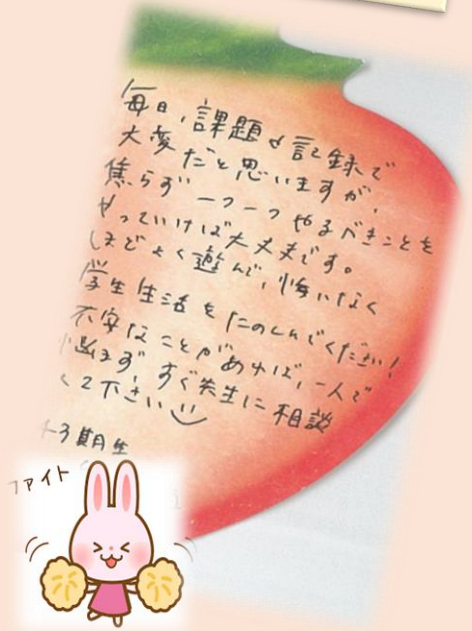 毎日、課題や記録で
大変だと思いますが、
焦らず 一つ一つ やるべきことを
やっていけば大丈夫です。
ほどよく遊んで、悔いなく
学生生活をたのしんでください！
不安なことがあれば、一人で
悩まず すぐ先生に相談
して下さい
期生
ファイト